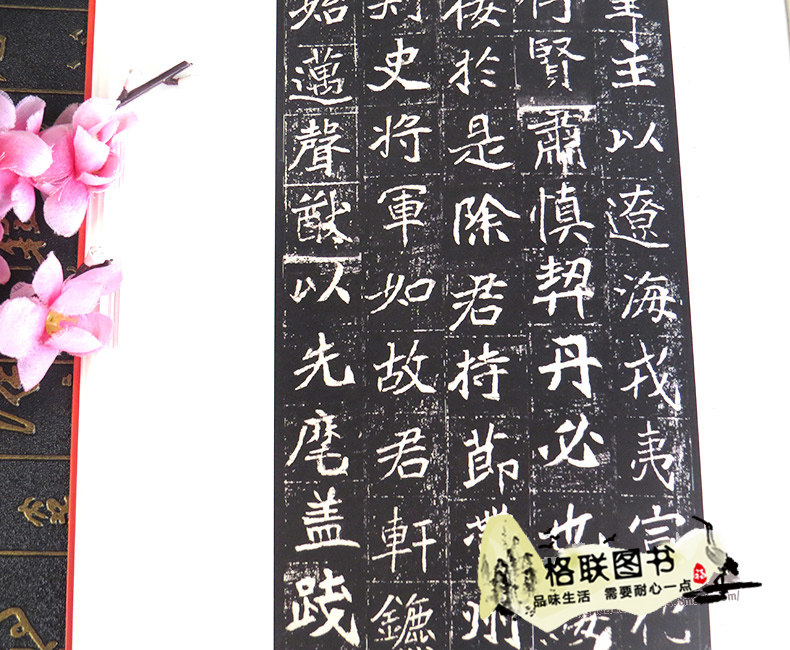 主以遼海戎夷宣化
賢肅慎契丹必也綏
於是除君持節營州
刺史將軍如故君軒鑣
始邁聲猷以先麾蓋踐
格联图书
品味生活 需要耐心一点